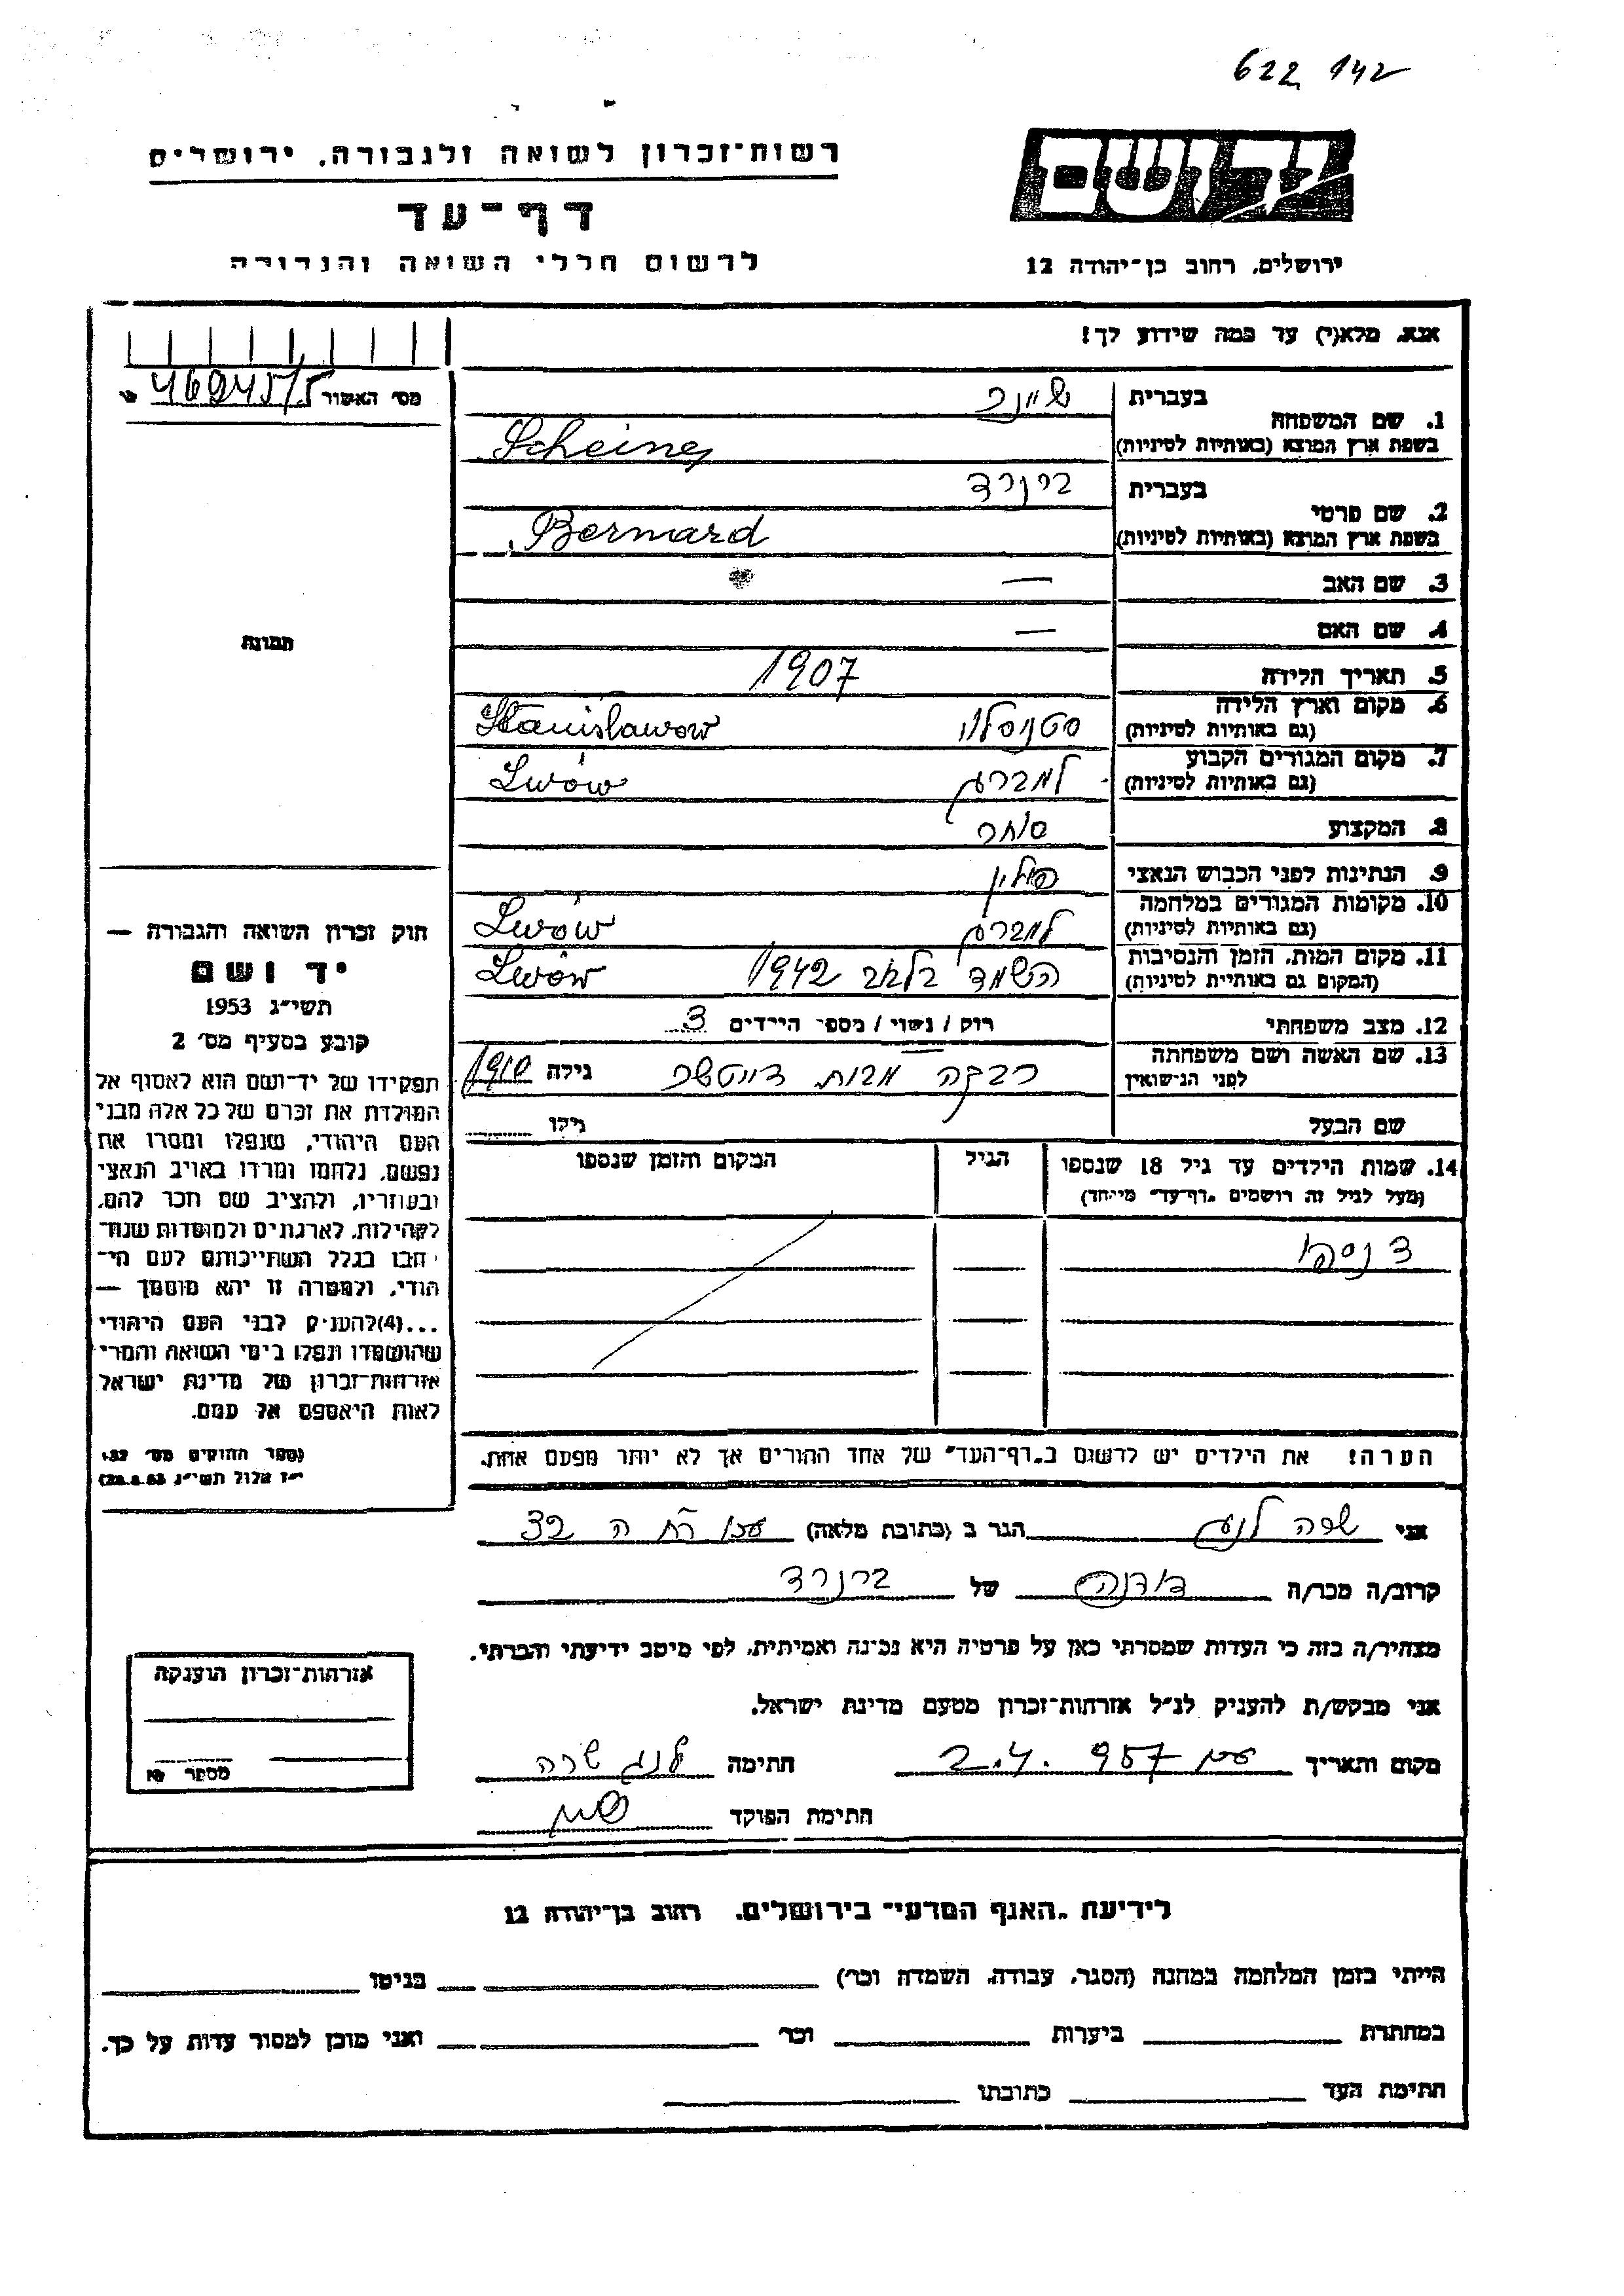 622 142
יד ושם
ירושלים, רחוב בן־יהודה 12
רשות־זכרון לשואה ולגבורה, ירושלים
דף־עד
לרשום חללי השואה והגבורה
אנא, מלא(י) עד כמה שידוע לך!
מס׳ האשור 46245/5
בעברית
1. שם המשפחה שיינר
בשפת ארץ המוצא (באותיות לטיניות) Scheiner
בעברית
2. שם פרטי ברנרד
בשפת ארץ המוצא (באותיות לטיניות) Bernard
3. שם האב —
4. שם האם —
5. תאריך הלידה 1907
6. מקום וארץ הלידה
(גם באותיות לטיניות) סטניסלוו Stanisławow
7. מקום המגורים הקבוע
(גם באותיות לטיניות) למברג Lwów
8. המקצוע סוחר
9. הנתינות לפני הכבוש הנאצי פולין
10. מקומות המגורים במלחמה
(גם באותיות לטיניות) למברג Lwów
11. מקום המות, הזמן והנסיבות
(המקום גם באותיות לטיניות) הושמד בלבוב 1942 Lwów
12. מצב משפחתי רווק / נשוי / מספר הילדים 3
13. שם האשה ושם משפחתה
לפני הנישואין רבקה מבית דויטשר גילה 1910
שם הבעל גילו
14. שמות הילדים עד גיל 18 שנספו
(מעל לגיל זה רושמים „דף־עד” מיוחד)
הגיל
המקום והזמן שנספו
3 נספו
הערה! את הילדים יש לרשום ב„דף־העד” של אחד ההורים אך לא יותר מפעם אחת.
תמונה
חוק זכרון השואה והגבורה —
יד ושם
תשי״ג 1953
קובע בסעיף מס׳ 2
תפקידו של יד־ושם הוא לאסוף אל
המולדת את זכרם של כל אלה מבני
העם היהודי, שנפלו ומסרו את
נפשם, נלחמו ומרדו באויב הנאצי
ובעוזריו, ולהציב שם וזכר להם,
לקהילות, לארגונים ולמוסדות שנח־
רבו בגלל השתייכותם לעם הי־
הודי, ולמטרה זו יהא מוסמך —
...(4) להעניק לבני העם היהודי
שהושמדו ונפלו בימי השואה והמרי
אזרחות־זכרון של מדינת ישראל
לאות היאספם אל עמם.
(ספר החוקים מס׳ 132,
י״ז אלול תשי״ג 28.8.53)
אני שרה לנג הגר ב (כתובת מלאה) עכו רח ה 32
קרוב/ה מכר/ה דודנה של ברנרד
מצהיר/ה בזה כי העדות שמסרתי כאן על פרטיה היא נכונה ואמיתית, לפי מיטב ידיעתי והכרתי.
אני מבקש/ת להעניק לנ״ל אזרחות־זכרון מטעם מדינת ישראל.
מקום ותאריך עכו 2.4.957 חתימה לנג שרה
חתימת הפוקד
אזרחות־זכרון הוענקה
מספר
לידיעת „האגף המדעי” בירושלים, רחוב בן־יהודה 12
הייתי בזמן המלחמה במחנה (הסגר, עבודה, השמדה וכו׳) בגיטו
במחתרת ביערות וכו׳ ואני מוכן למסור עדות על כך.
חתימת העד כתובתו